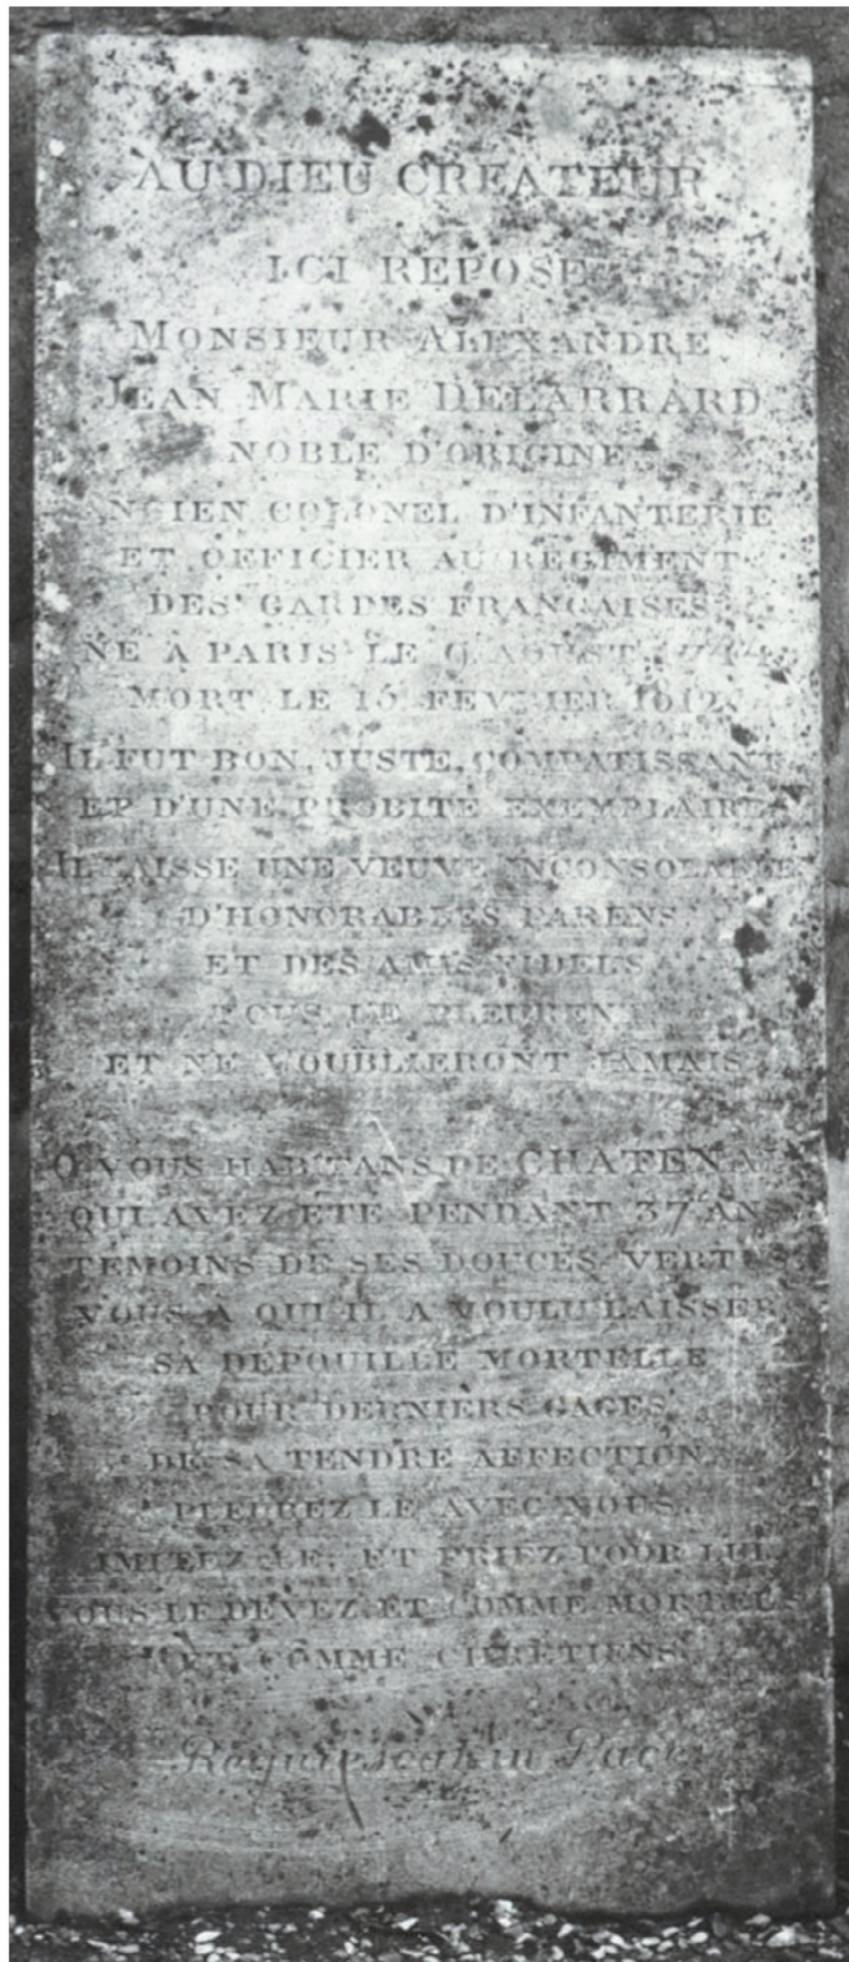 AU DIEU CREATEUR
ICI REPOSE
MONSIEUR ALEXANDRE
JEAN MARIE DELARRARD
NOBLE D'ORIGINE
ANCIEN COLONEL D'INFANTERIE
ET OFFICIER AU REGIMENT
DES GARDES FRANCAISES
NE A PARIS LE 9 AOUST 1744
MORT LE 15 FEVRIER 1812.
IL FUT BON, JUSTE, COMPATISSANT
ET D'UNE PROBITE EXEMPLAIRE
IL LAISSE UNE VEUVE INCONSOLABLE
D'HONORABLES PARENS
ET DES AMIS FIDELS
TOUS LE PLEURENT
ET NE L'OUBLIERONT JAMAIS
O VOUS HABITANS DE CHATENAI
QUI AVEZ ETE PENDANT 37 ANS
TEMOINS DE SES DOUCES VERTUS
VOUS A QUI IL A VOULU LAISSER
SA DEPOUILLE MORTELLE
POUR DERNIERS GAGES
DE SA TENDRE AFFECTION,
PLEUREZ LE AVEC NOUS,
IMITEZ LE, ET PRIEZ POUR LUI,
VOUS LE DEVEZ ET COMME MORTELS
ET COMME CHRETIENS.
Requiescat in Pace